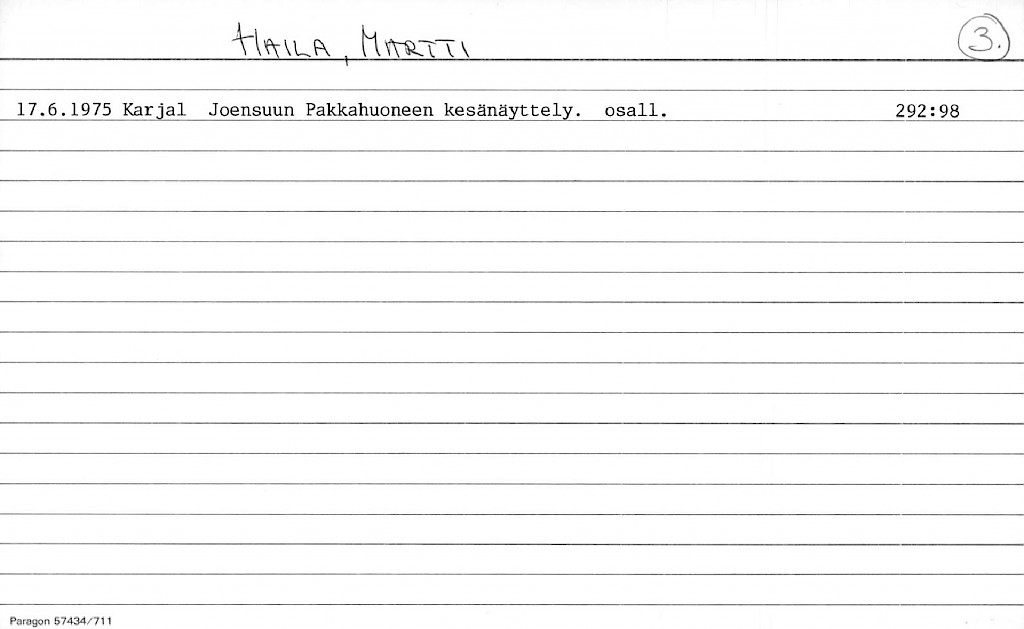 HAILA, MARTTI 3.
17.6.1975 Karjal Joensuun Pakkahuoneen kesänäyttely. osall. 292:98
Paragon 57434/711